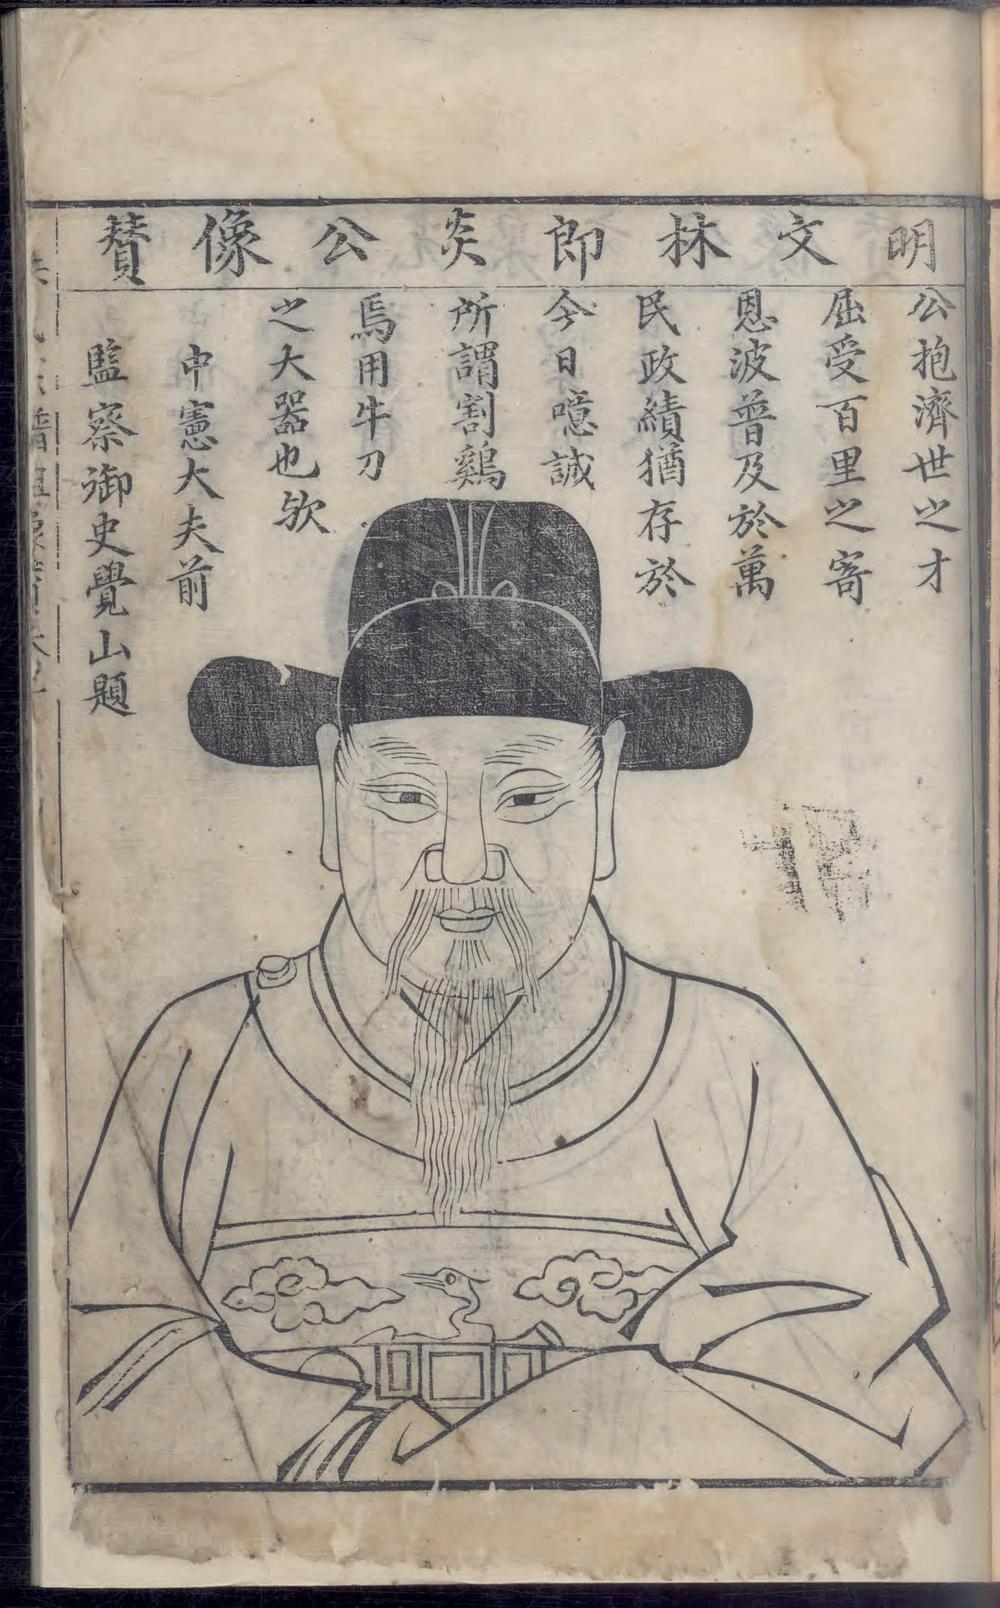 明文林郎炎公像贊
公抱濟世之才
屈受百里之寄
恩波普及於萬
民政績猶存於
今日噫誠
所謂割鷄
焉用牛刀
之大器也欤
中憲大夫前
監察御史覺山題